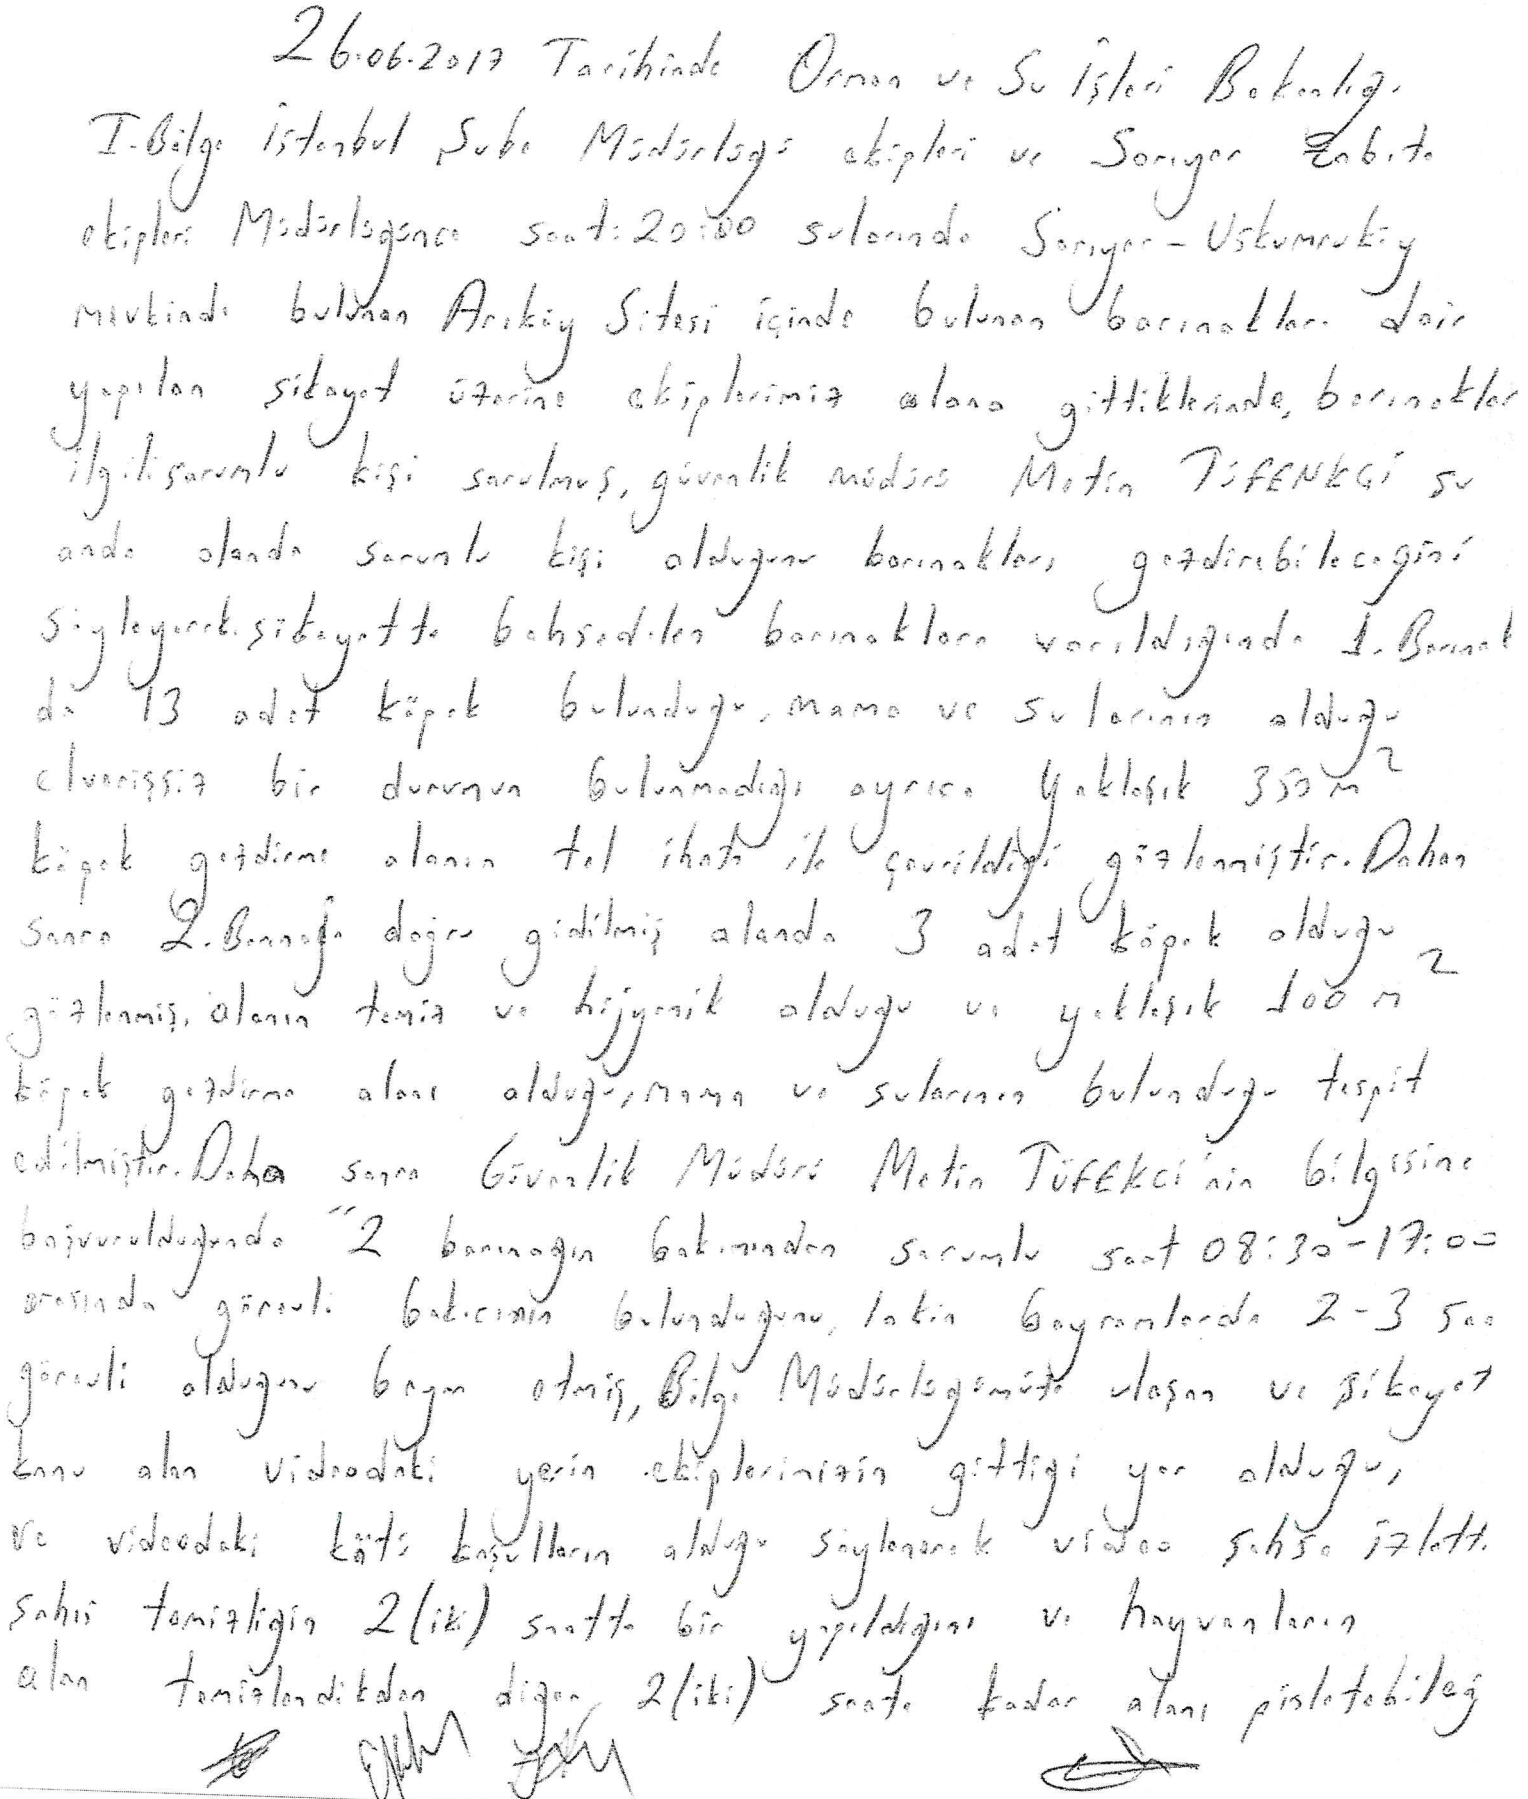 26.06.2017 Tarihinde Orman ve Su İşleri Bakanlığı
I. Bölge İstanbul Şube Müdürlüğü ekipleri ve Sarıyer Zabıta
ekipleri Müdürlüğünce saat: 20:00 sularında Sarıyer - Uskumruköy
mevkinde bulunan Arıköy Sitesi içinde bulunan barınaklara dair
yapılan şikayet üzerine ekiplerimiz alana gittiklerinde, barınaklar
ilgili sorumlu kişi sorulmuş, güvenlik müdürü Metin TÜFENKÇİ şu
anda alanda sorumlu kişi olduğunu barınakları gezdirebileceğini
söyleyerek şikayette bahsedilen barınaklara varıldığında 1. Barınak
da 13 adet köpek bulunduğu, mama ve sularının olduğu
elverişsiz bir durumun bulunmadığı ayrıca yaklaşık 350 m²
köpek gezdirme alanın tel ihata ile çevrildiği gözlenmiştir. Dahan
sonra 2. Barınağa doğru gidilmiş alanda 3 adet köpek olduğu
gözlenmiş, alanın temiz ve hijyenik olduğu ve yaklaşık 100 m²
köpek gezdirme alanı olduğu, mama ve sularının bulunduğu tespit
edilmiştir. Daha sonra Güvenlik Müdürü Metin TÜFEKCİ'nin bilgisine
başvurulduğunda "2 barınağın bakımından sorumlu saat 08:30-17:00
arasında görevli bakıcının bulunduğunu, lakin bayramlarda 2-3 saa
görevli olduğunu beyan etmiş, Bölge Müdürlüğümüze ulaşan ve şikayet
konu olan videodaki yerin ekiplerimizin gittiği yer olduğu,
ve videodaki kötü koşulların olduğu söylenerek video şahsa izletti.
Şahıs temizliğin 2 (iki) saatte bir yapıldığını ve hayvanların
alan temizlendikden diğer 2 (iki) saate kadar alanı pisletebileğ